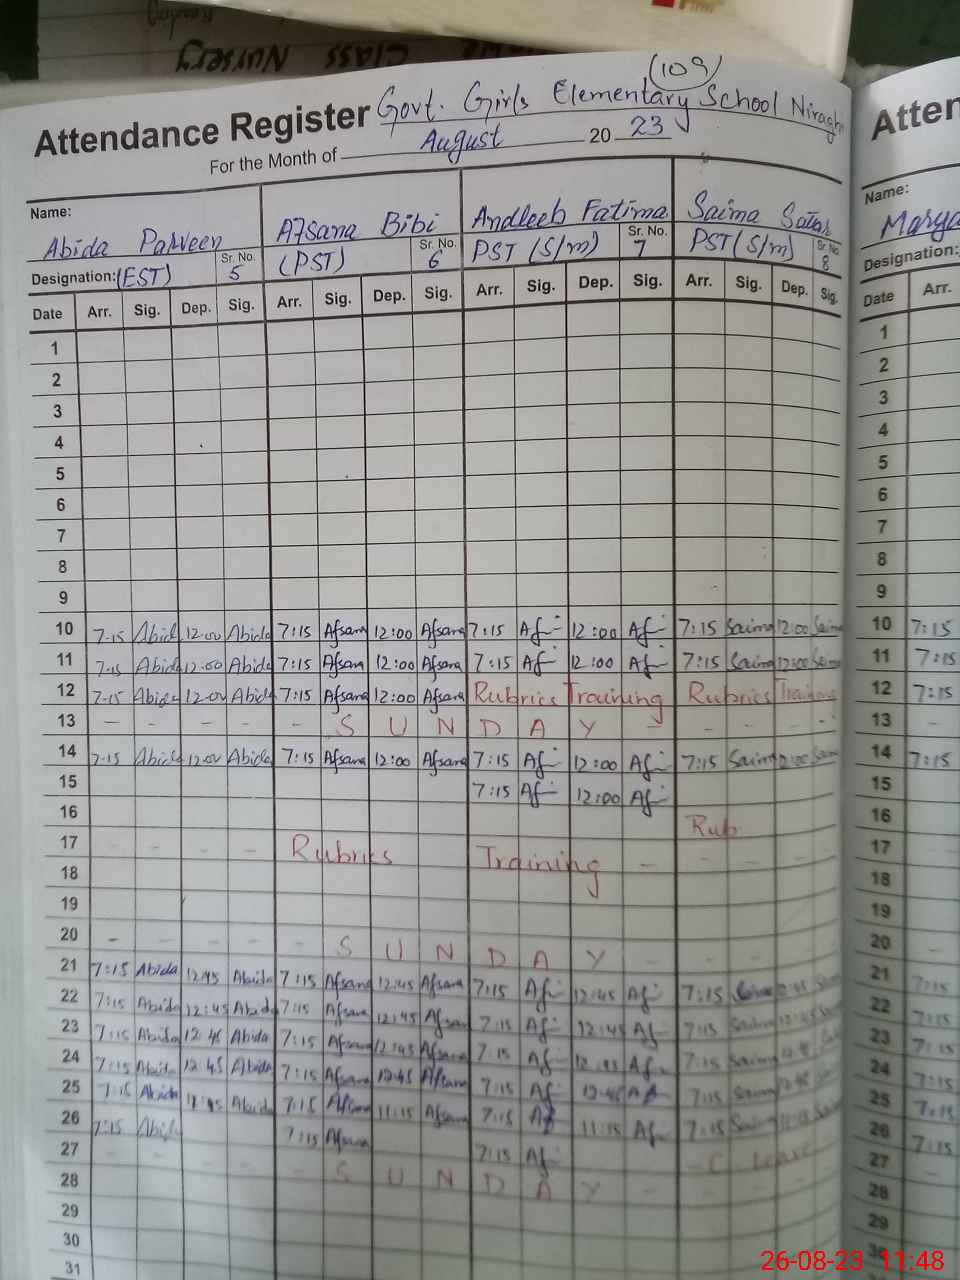 CLASS Nursery
(109)
Attendance Register Govt. Girls Elementary School
For the Month of August 20 23
Name: Abida Parveen Afsana Bibi Andleeb Fatima Saima
Designation: (EST) Sr. No. 5 (PST) Sr. No. 6 PST (S/m) Sr. No. 7 PST (S/m) Sr. No. 8
Date Arr. Sig. Dep. Sig. Arr. Sig. Dep. Sig. Arr. Sig. Dep. Sig. Arr. Sig. Dep. Sig.
1
2
3
4
5
6
7
8
9
10 7:15 Abida 12:00 Abida 7:15 Afsana 12:00 Afsana 7:15 Af 12:00 Af 7:15 Saima 12:00 Saima
11 7:15 Abida 12:00 Abida 7:15 Afsana 12:00 Afsana 7:15 Af 12:00 Af 7:15 Saima 12:00 Saima
12 7:15 Abida 12:00 Abida 7:15 Afsana 12:00 Afsana Rubrics Training Rubrics Training
13 - - - - - S U N D A Y - - - -
14 7:15 Abida 12:00 Abida 7:15 Afsana 12:00 Afsana 7:15 Af 12:00 Af 7:15 Saima 12:00 Saima
15 7:15 Af 12:00 Af
16 Rub
17 - - - - Rubrics Training - - - -
18
19
20 - - - - - S U N D A Y - - - -
21 7:15 Abida 12:45 Abida 7:15 Afsana 12:45 Afsana 7:15 Af 12:45 Af 7:15 Saima 12:45
22 7:15 Abida 12:45 Abida 7:15 Afsana 12:45 Afsana 7:15 Af 12:45 Af 7:15 Saima 12:45
23 7:15 Abida 12:45 Abida 7:15 Afsana 12:45 Afsana 7:15 Af 12:45 Af 7:15 Saima
24 7:15 Abida 12:45 Abida 7:15 Afsana 12:45 Afsana 7:15 Af 12:45 Af 7:15 Saima 12:45
25 7:15 Abida Abida 7:15 Afsana 11:15 Afsana 7:15 Af 11:15 Af 7:15 Saima
26 7:15 Abida 7:15 Afsana 7:15 Af C. Leave
27 - - - - - S U N D A Y - -
28
29
30
31
Name:
Designation:
Date Arr.
1
2
3
4
5
6
7
8
9
10 7:15
11 7:15
12 7:15
13 -
14 7:15
15
16
17 -
18
19
20 -
21 7:15
22 7:15
23 7:15
24 7:15
25 7:15
26 7:15
27 -
28
29
26-08-23 11:48